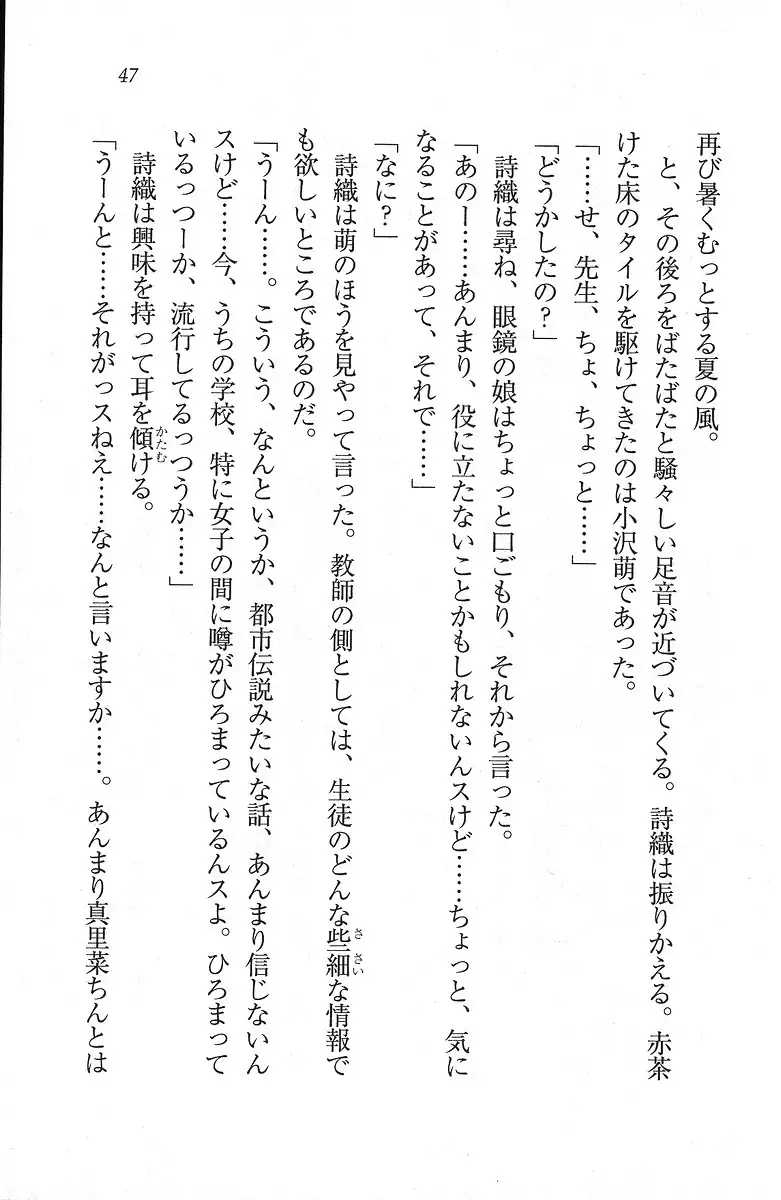 47
再び暑くむっとする夏の風。
　と、その後ろをばたばたと騒々しい足音が近づいてくる。詩織は振りかえる。赤茶
けた床のタイルを駆けてきたのは小沢萌であった。
「……せ、先生、ちょ、ちょっと……」
「どうかしたの？」
　詩織は尋ね、眼鏡の娘はちょっと口ごもり、それから言った。
「あのー……あんまり、役に立たないことかもしれないんスけど……ちょっと、気に
なることがあって、それで……」
「なに？」
　詩織は萌のほうを見やって言った。教師の側としては、生徒のどんな些細な情報で
も欲しいところであるのだ。
「うーん……。こういう、なんというか、都市伝説みたいな話、あんまり信じないん
スけど……今、うちの学校、特に女子の間に噂がひろまっているんスよ。ひろまって
いるっつーか、流行してるっつうか……」
　詩織は興味を持って耳を傾ける。
「うーんと……それがっスねえ……なんと言いますか……。あんまり真里菜ちんとは